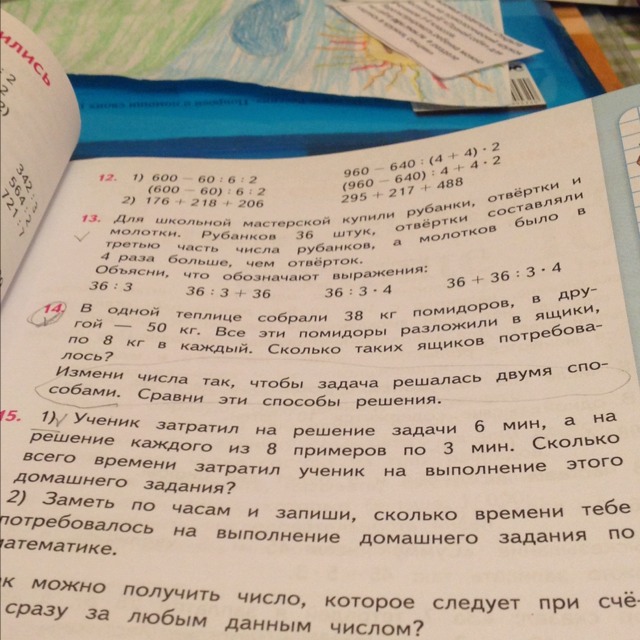 ились
: 2
342 :
564 :
721 :
12. 1) 600 − 60 : 6 : 2
960 − 640 : (4 + 4) · 2
(600 − 60) : 6 : 2
(960 − 640) : 4 + 4 · 2
2) 176 + 218 + 206
295 + 217 + 488
13. Для школьной мастерской купили рубанки, отвёртки и
молотки. Рубанков 36 штук, отвёртки составляли
третью часть числа рубанков, а молотков было в
4 раза больше, чем отвёрток.
Объясни, что обозначают выражения:
36 : 3 36 : 3 + 36 36 : 3 · 4 36 + 36 : 3 · 4
14. В одной теплице собрали 38 кг помидоров, в дру-
гой — 50 кг. Все эти помидоры разложили в ящики,
по 8 кг в каждый. Сколько таких ящиков потребова-
лось?
Измени числа так, чтобы задача решалась двумя спо-
собами. Сравни эти способы решения.
15. 1) Ученик затратил на решение задачи 6 мин, а на
решение каждого из 8 примеров по 3 мин. Сколько
всего времени затратил ученик на выполнение этого
домашнего задания?
2) Заметь по часам и запиши, сколько времени тебе
потребовалось на выполнение домашнего задания по
математике.
ак можно получить число, которое следует при счё-
сразу за любым данным числом?